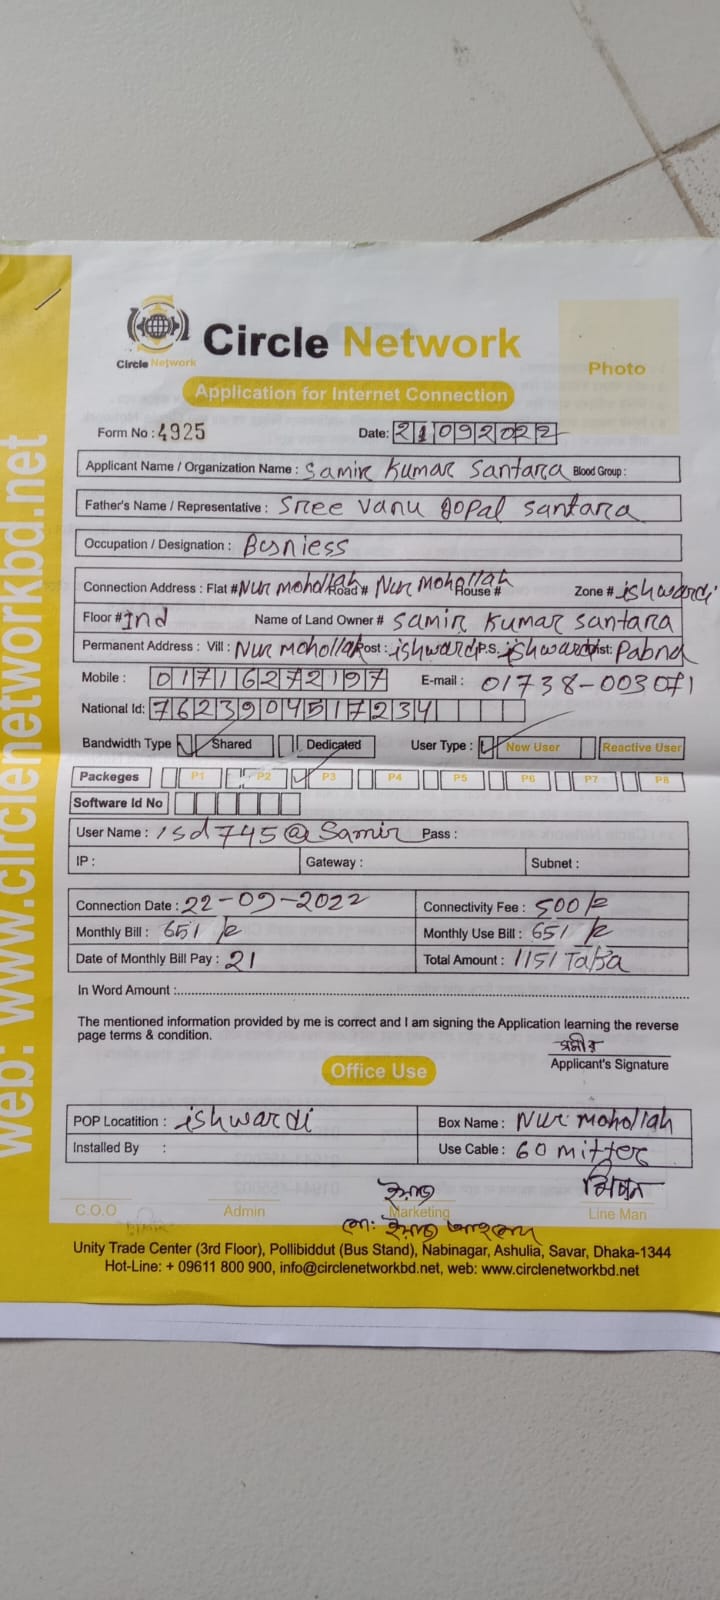 web: www.circlenetworkbd.net
Circle Network
Circle Network
Photo
Application for Internet Connection
Form No : 4925 Date: 21092022
Applicant Name / Organization Name : Samir Kumar Santara Blood Group :
Father's Name / Representative : Sree Vanu gopal Santara
Occupation / Designation : Besniess
Connection Address : Flat # Nur mohollah Road # Nur Mohollah House # Zone # ishwardi
Floor # Ind Name of Land Owner # Samir Kumar santara
Permanent Address : Vill : Nur mohollah Post : ishwardi P.S. ishwardi Dist: Pabna
Mobile : 01716272197 E-mail : 01738-003071
National Id: 7623904517234
Bandwidth Type Shared Dedicated User Type : New User Reactive User
Packeges P1 P2 P3 P4 P5 P6 P7 P8
Software Id No
User Name : isd745@Samir Pass :
IP : Gateway : Subnet :
Connection Date : 22-09-2022 Connectivity Fee : 500/=
Monthly Bill : 651/= Monthly Use Bill : 651/=
Date of Monthly Bill Pay : 21 Total Amount : 1151 Taka
In Word Amount :
The mentioned information provided by me is correct and I am signing the Application learning the reverse
page terms & condition.
সমীর
Applicant's Signature
Office Use
POP Locatition : ishwardi Box Name : Nur mohollah
Installed By : Use Cable : 60 mitter
C.O.O Admin Marketing Line Man
Unity Trade Center (3rd Floor), Pollibiddut (Bus Stand), Nabinagar, Ashulia, Savar, Dhaka-1344
Hot-Line: + 09611 800 900, info@circlenetworkbd.net, web: www.circlenetworkbd.net